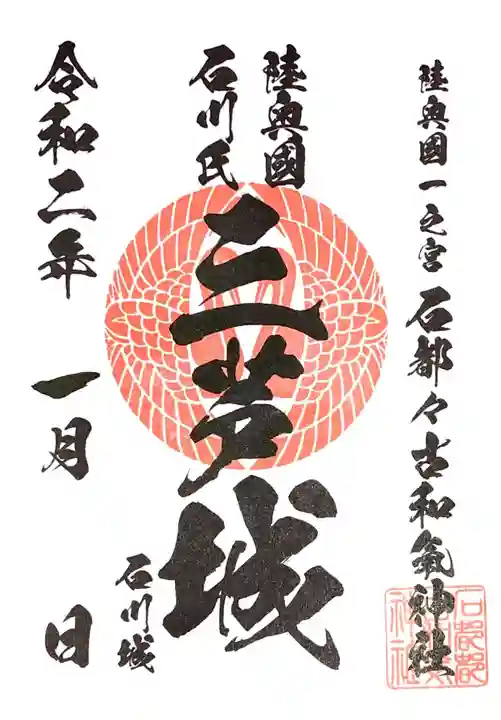 陸奥國一之宮 石都々古和氣神社
陸奥國
石川氏
三芦城
石川城
令和二年 一月 日
石都都
神社